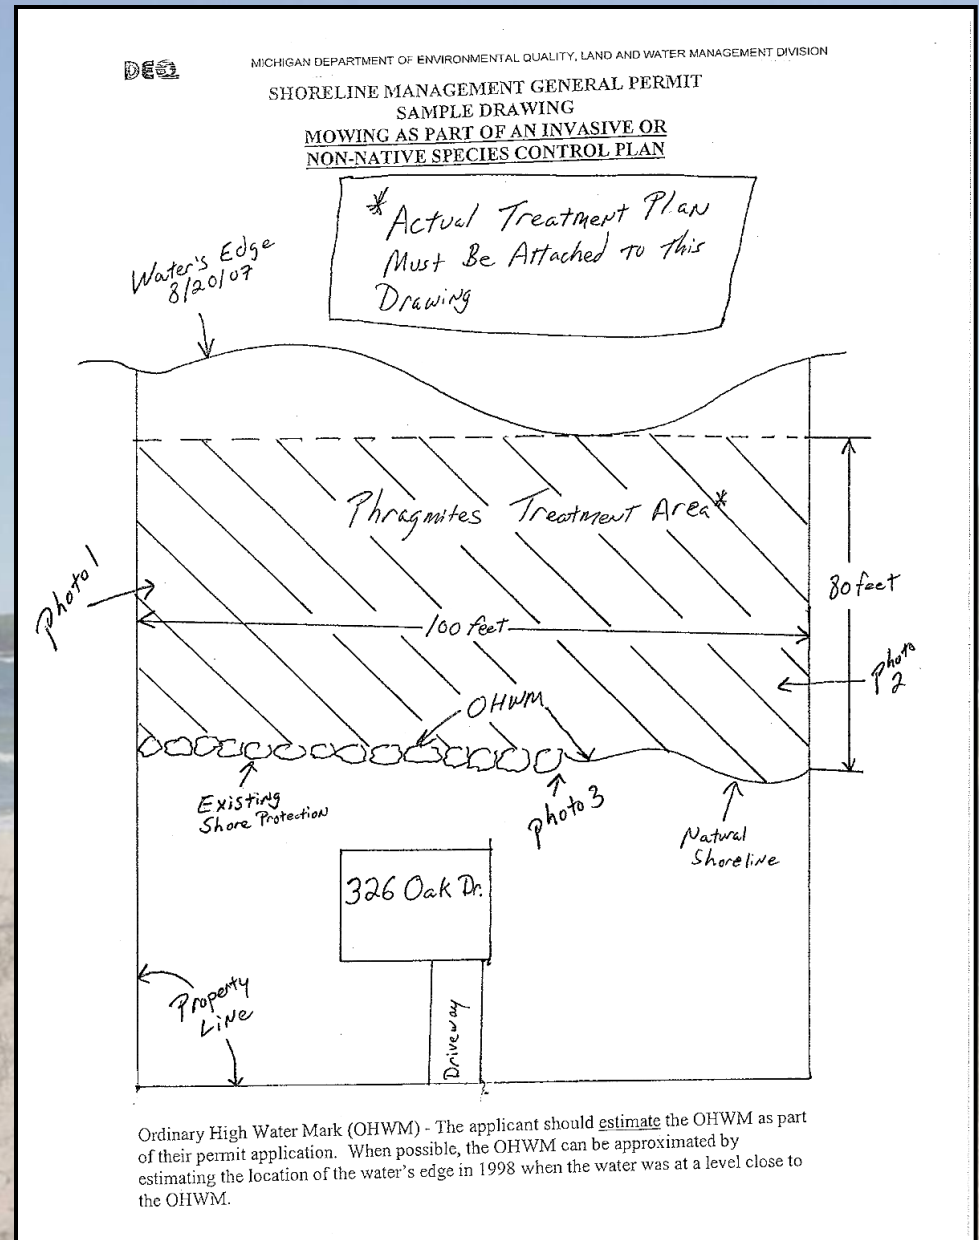 DEQ
MICHIGAN DEPARTMENT OF ENVIRONMENTAL QUALITY, LAND AND WATER MANAGEMENT DIVISION
SHORELINE MANAGEMENT GENERAL PERMIT
SAMPLE DRAWING
MOWING AS PART OF AN INVASIVE OR
NON-NATIVE SPECIES CONTROL PLAN
* Actual Treatment Plan
Must Be Attached To This
Drawing
Water's Edge
8/20/07
Phragmites Treatment Area*
Photo 1
80 feet
100 feet
Photo
2
OHWM
Existing
Shore Protection
photo 3
Natural
Shoreline
326 Oak Dr.
Property
Line
Driveway
Ordinary High Water Mark (OHWM) - The applicant should estimate the OHWM as part
of their permit application. When possible, the OHWM can be approximated by
estimating the location of the water's edge in 1998 when the water was at a level close to
the OHWM.